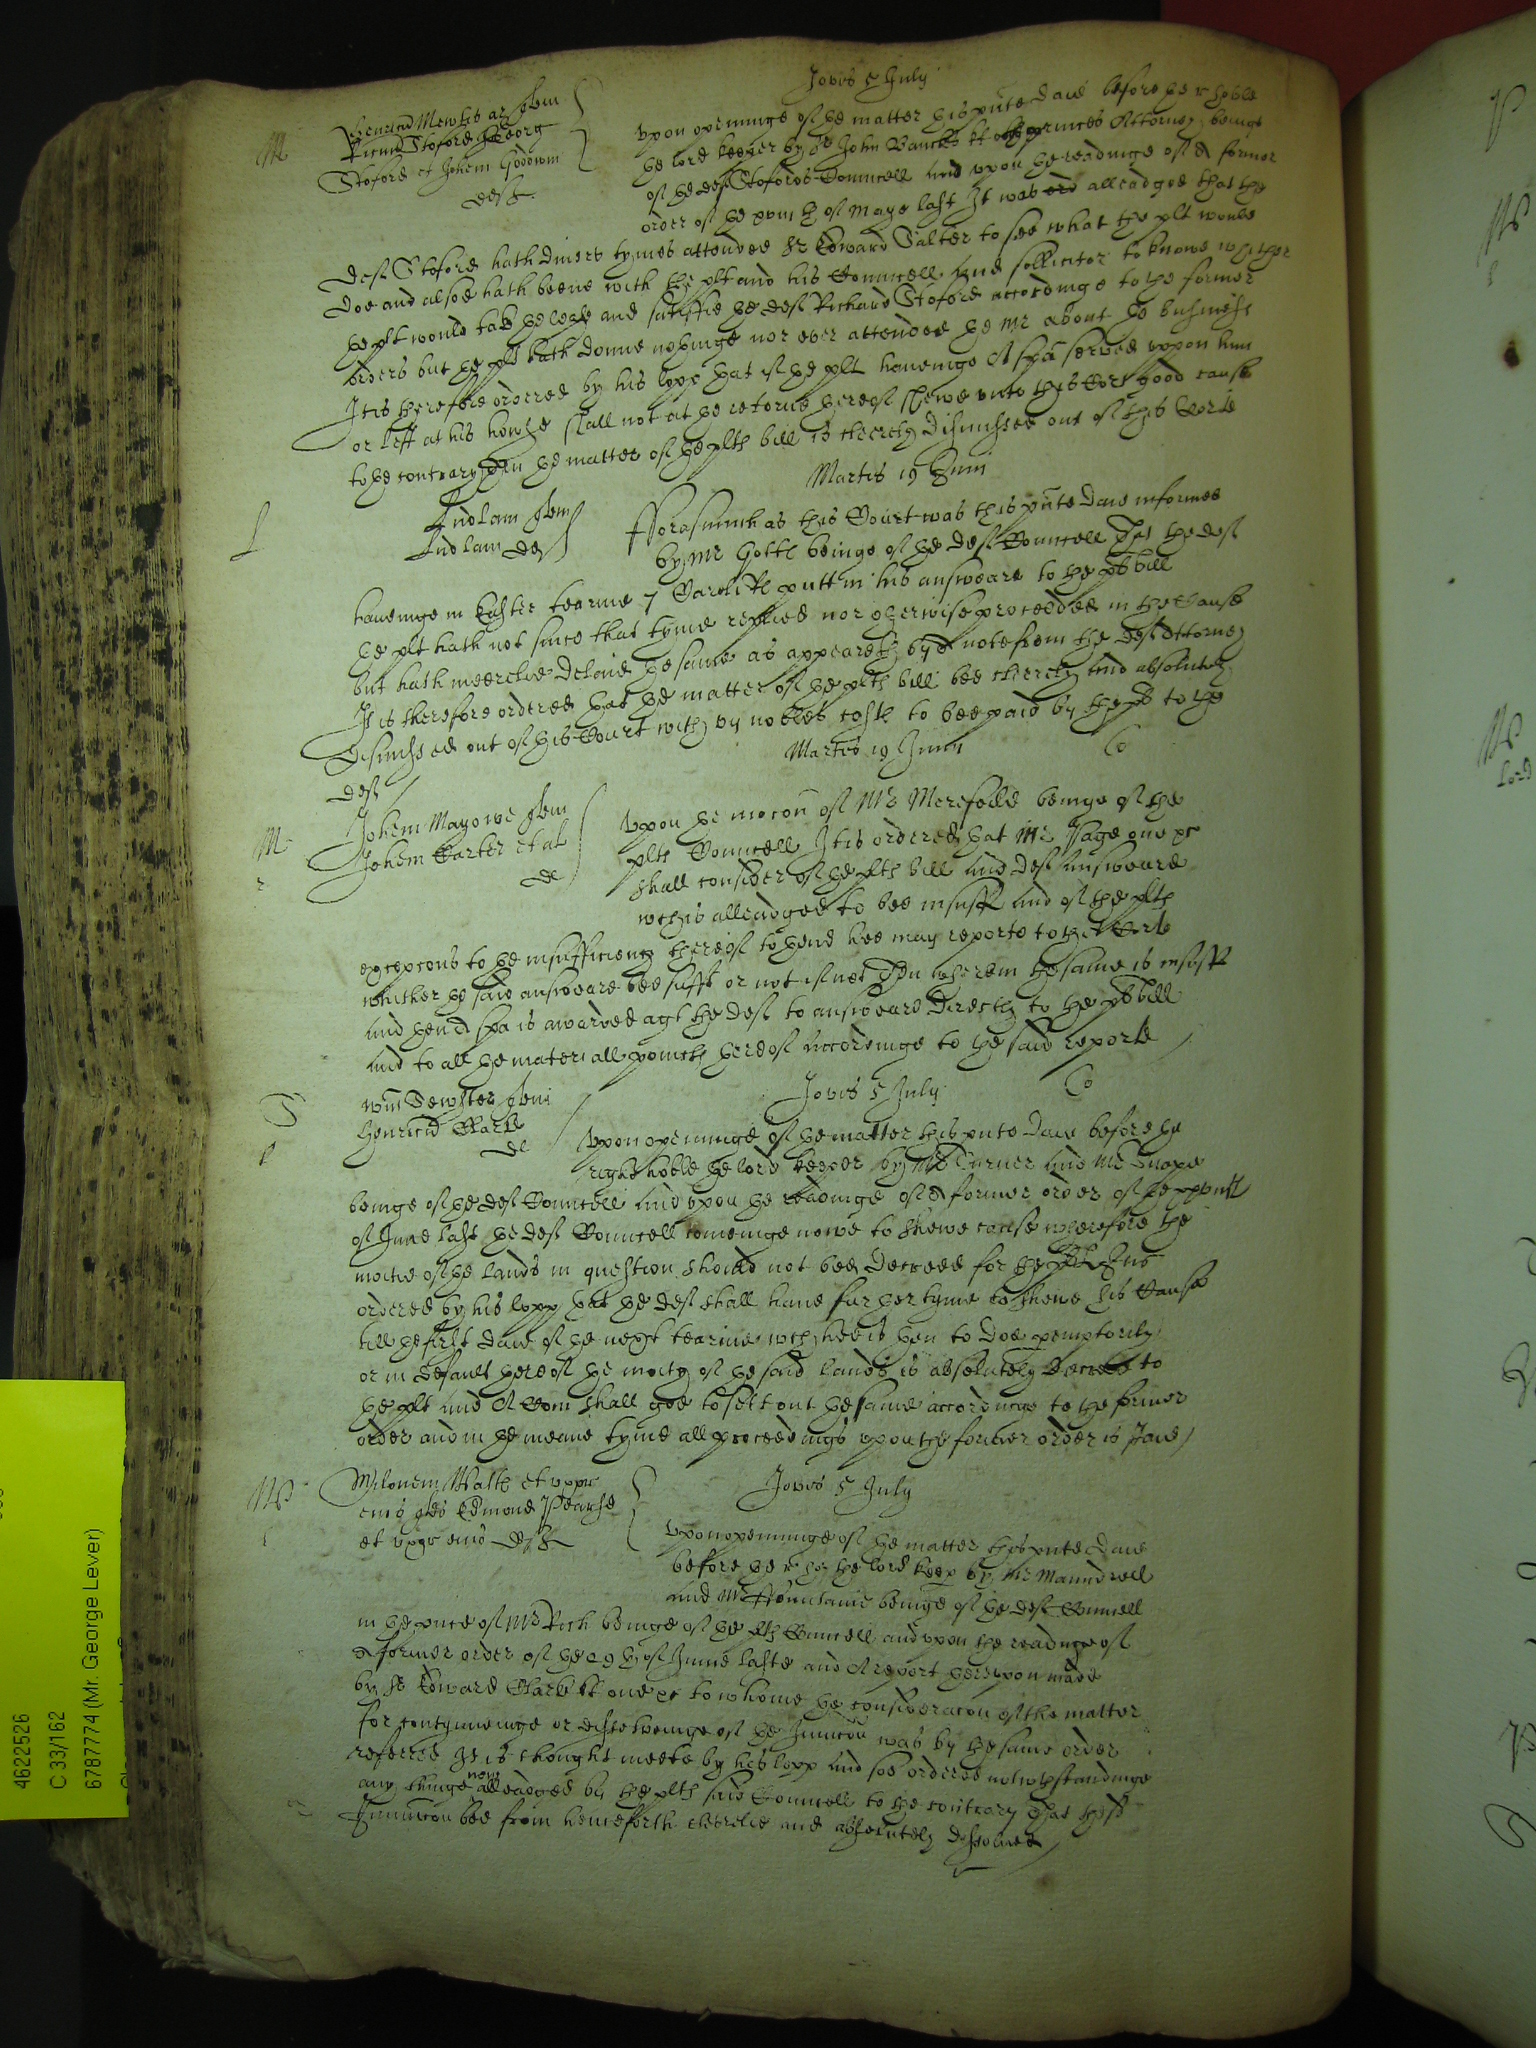 Jovis 5 July
M Henricu Mewtis ar quem
Ricum Stoford Georg
Stoford et Johem Godwin
deftes
upon openinge of the matter this pnte daie before the r hoble
the lord keeper by Sr John Banckes kt the princes Attorney beinge
of the deft Stofords Councell and upon the readinge of a former
order of the xviii th of Maye last It was alleadged that the
deft Stoford hath divers tymes attended Sr Edward Salter to see what the plt would
doe and alsoe hath beene with the plt and his Councell and sollicitor to knowe whether
the plt would take the lease and satisfie the deft Richard Stoford accordinge to the former
orders but the plt hath donne nothinge nor ever attended the Mr about the busines
It is therefore ordered by his lopp that if the plt haveinge A spa served uppon him
or left at his howse shall not at the retorne thereof shewe unto this Cort good cause
to the contrary then the matter of the plts bill is cleerely dismissed out of this Corte
Martis 19 Junii
L Ludlam quem
Ludlam def
fforasmuch as this Court was this pnte daie informed
by Mr beinge of the deft Councell That the deft
haveinge in Easter tearme 7 Caroli R putt in his answeare to the pts bill
the plt hath not since that tyme replied nor otherwise proceeded in the Cause
but hath meerelie delaied the same as appeareth by a note from the deft Attorney
It is therefore ordered that the matter of the plts bill bee cleerely and absolutely
dismissed out of this Court with vii nobles costs to bee paid by the pts to the
deft
Martis 19 Junii Co
M Johem Mayowe quem
Johem Carter et al
de
Upon the mocon of Mr Merefeild beinge of the
plts Councell It is ordered that Mr Page one &c
shall consider of the plts bill and deft Answeare
wch is alleadged to bee insuff and of the plts
excepcons to the insufficiency thereof to thend hee may reporte to this Corte
whither the said answeare bee sufft or not if not then wherein the same is insuff
and then A spa is awarded agt the deft to answeare directly to the pts bill
and to all the materiall points thereof accordinge to the said reporte
Jovis 5 July Co
Wm quem
Henricu Clarke
de
Upon openinge of the matter this pnte daie before the
right hoble the lord keeper by Mr Turner and Mr
beinge of the deft Councell and upon the readinge of a former order of the
of June last the deft Councell comeinge nowe to shewe cause wherefore the
moitie of the lands in question should not bee decreed for the plt It is
ordered by his lopp that the deft shall have further tyme to shewe his Cause
till the first daie of the next tearme wch hee is then to doe pemptorily
or in default thereof the moity of the said lands is absolutely decreed to
the plt and A Com shall goe to sett out the same accordinge to the former
order and in the meane tyme all proceedings upon the former order is staid
Jovis 5 July
W Milonem Walk et uxor
eius ques Edmond Pearse
et uxor eius deftes
Upon openninge of the matter this pnte daie
before the r ho: the lord keep by Mr Maundrell
and Mr ffountaine beinge of the deft Councell
in the pnce of Mr Rich beinge of the plts Councell and upon the readinge of
a former order of the 29 th of June laste and A report thereupon made
by Sr Edward Clarke kt one &c to whome the consideracon of the matter
for contynueinge or dissolveinge of the Iniuncon was by the same order
referred It is thought meete by his lopp and soe ordered notwthstandinge
any thinge now alleadged by the plts said Councell to the contrary That the sd
Iniuncon bee from henceforth cleerelie and absolutely dissolved
4622526
C 33/162
6787774 (Mr. George Lever)